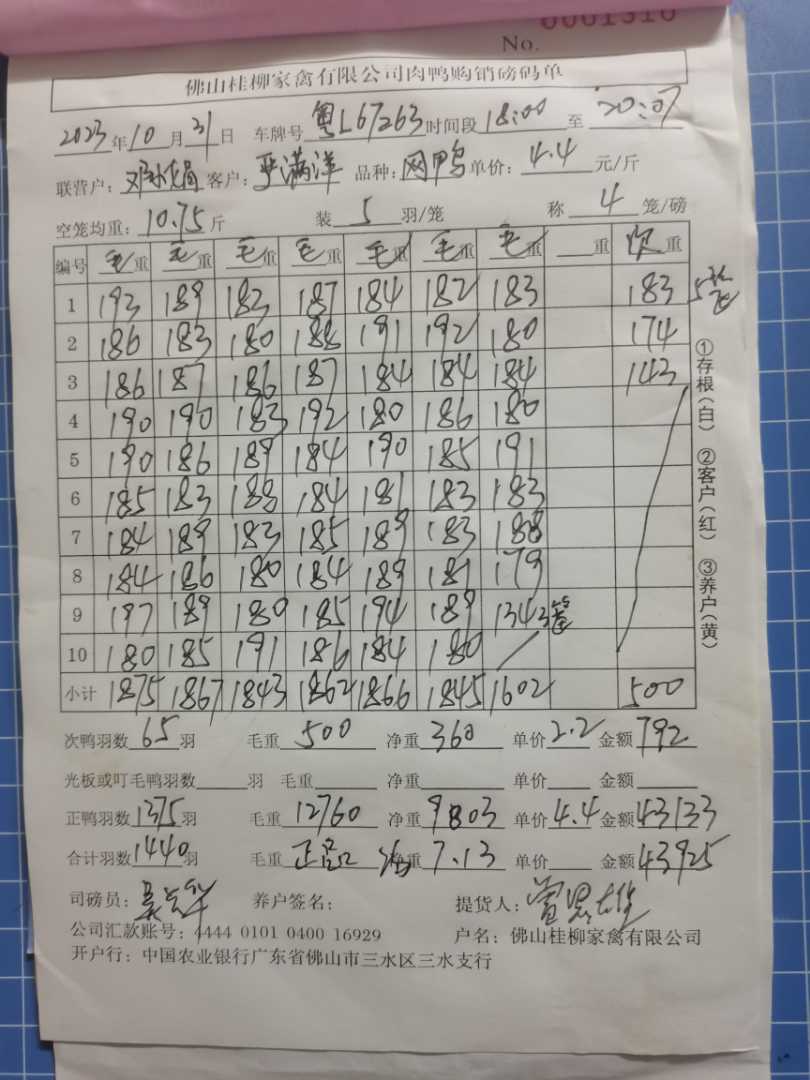 No. 0001316
佛山桂柳家禽有限公司肉鸭购销磅码单
2023年10月31日 车牌号 粤L67263 时间段 18:00 至 20:07
联营户: 客户: 严满洋 品种: 网鸭 单价: 4.4 元/斤
空笼均重: 10.75 斤 装 5 羽/笼 称 4 笼/磅
编号 毛重 毛重 毛重 毛重 毛重 毛重 毛重 重 次重
1 193 189 183 187 184 182 183 183 5羽/笼
2 186 183 180 188 191 192 180 174
3 186 187 186 187 184 184 184 143
4 190 190 183 192 180 186 180
5 190 186 189 184 190 185 191
6 185 183 188 184 181 183 183
7 184 189 183 185 189 183 188
8 184 186 180 184 189 181 179
9 197 189 180 185 194 189 134 3笼
10 180 185 191 186 184 180
小计 1875 1867 1843 1862 1866 1845 1602 500
①存根(白) ②客户(红) ③养户(黄)
次鸭羽数 65 羽 毛重 500 净重 360 单价 2.2 金额 792
光板或叮毛鸭羽数 羽 毛重 净重 单价 金额
正鸭羽数 1375 羽 毛重 12760 净重 9803 单价 4.4 金额 43133
合计羽数 1440 羽 毛重 正品 净重 7.13 单价 金额 43925
司磅员: 养户签名: 提货人:
公司汇款账号: 4444 0101 0400 16929 户名: 佛山桂柳家禽有限公司
开户行: 中国农业银行广东省佛山市三水区三水支行